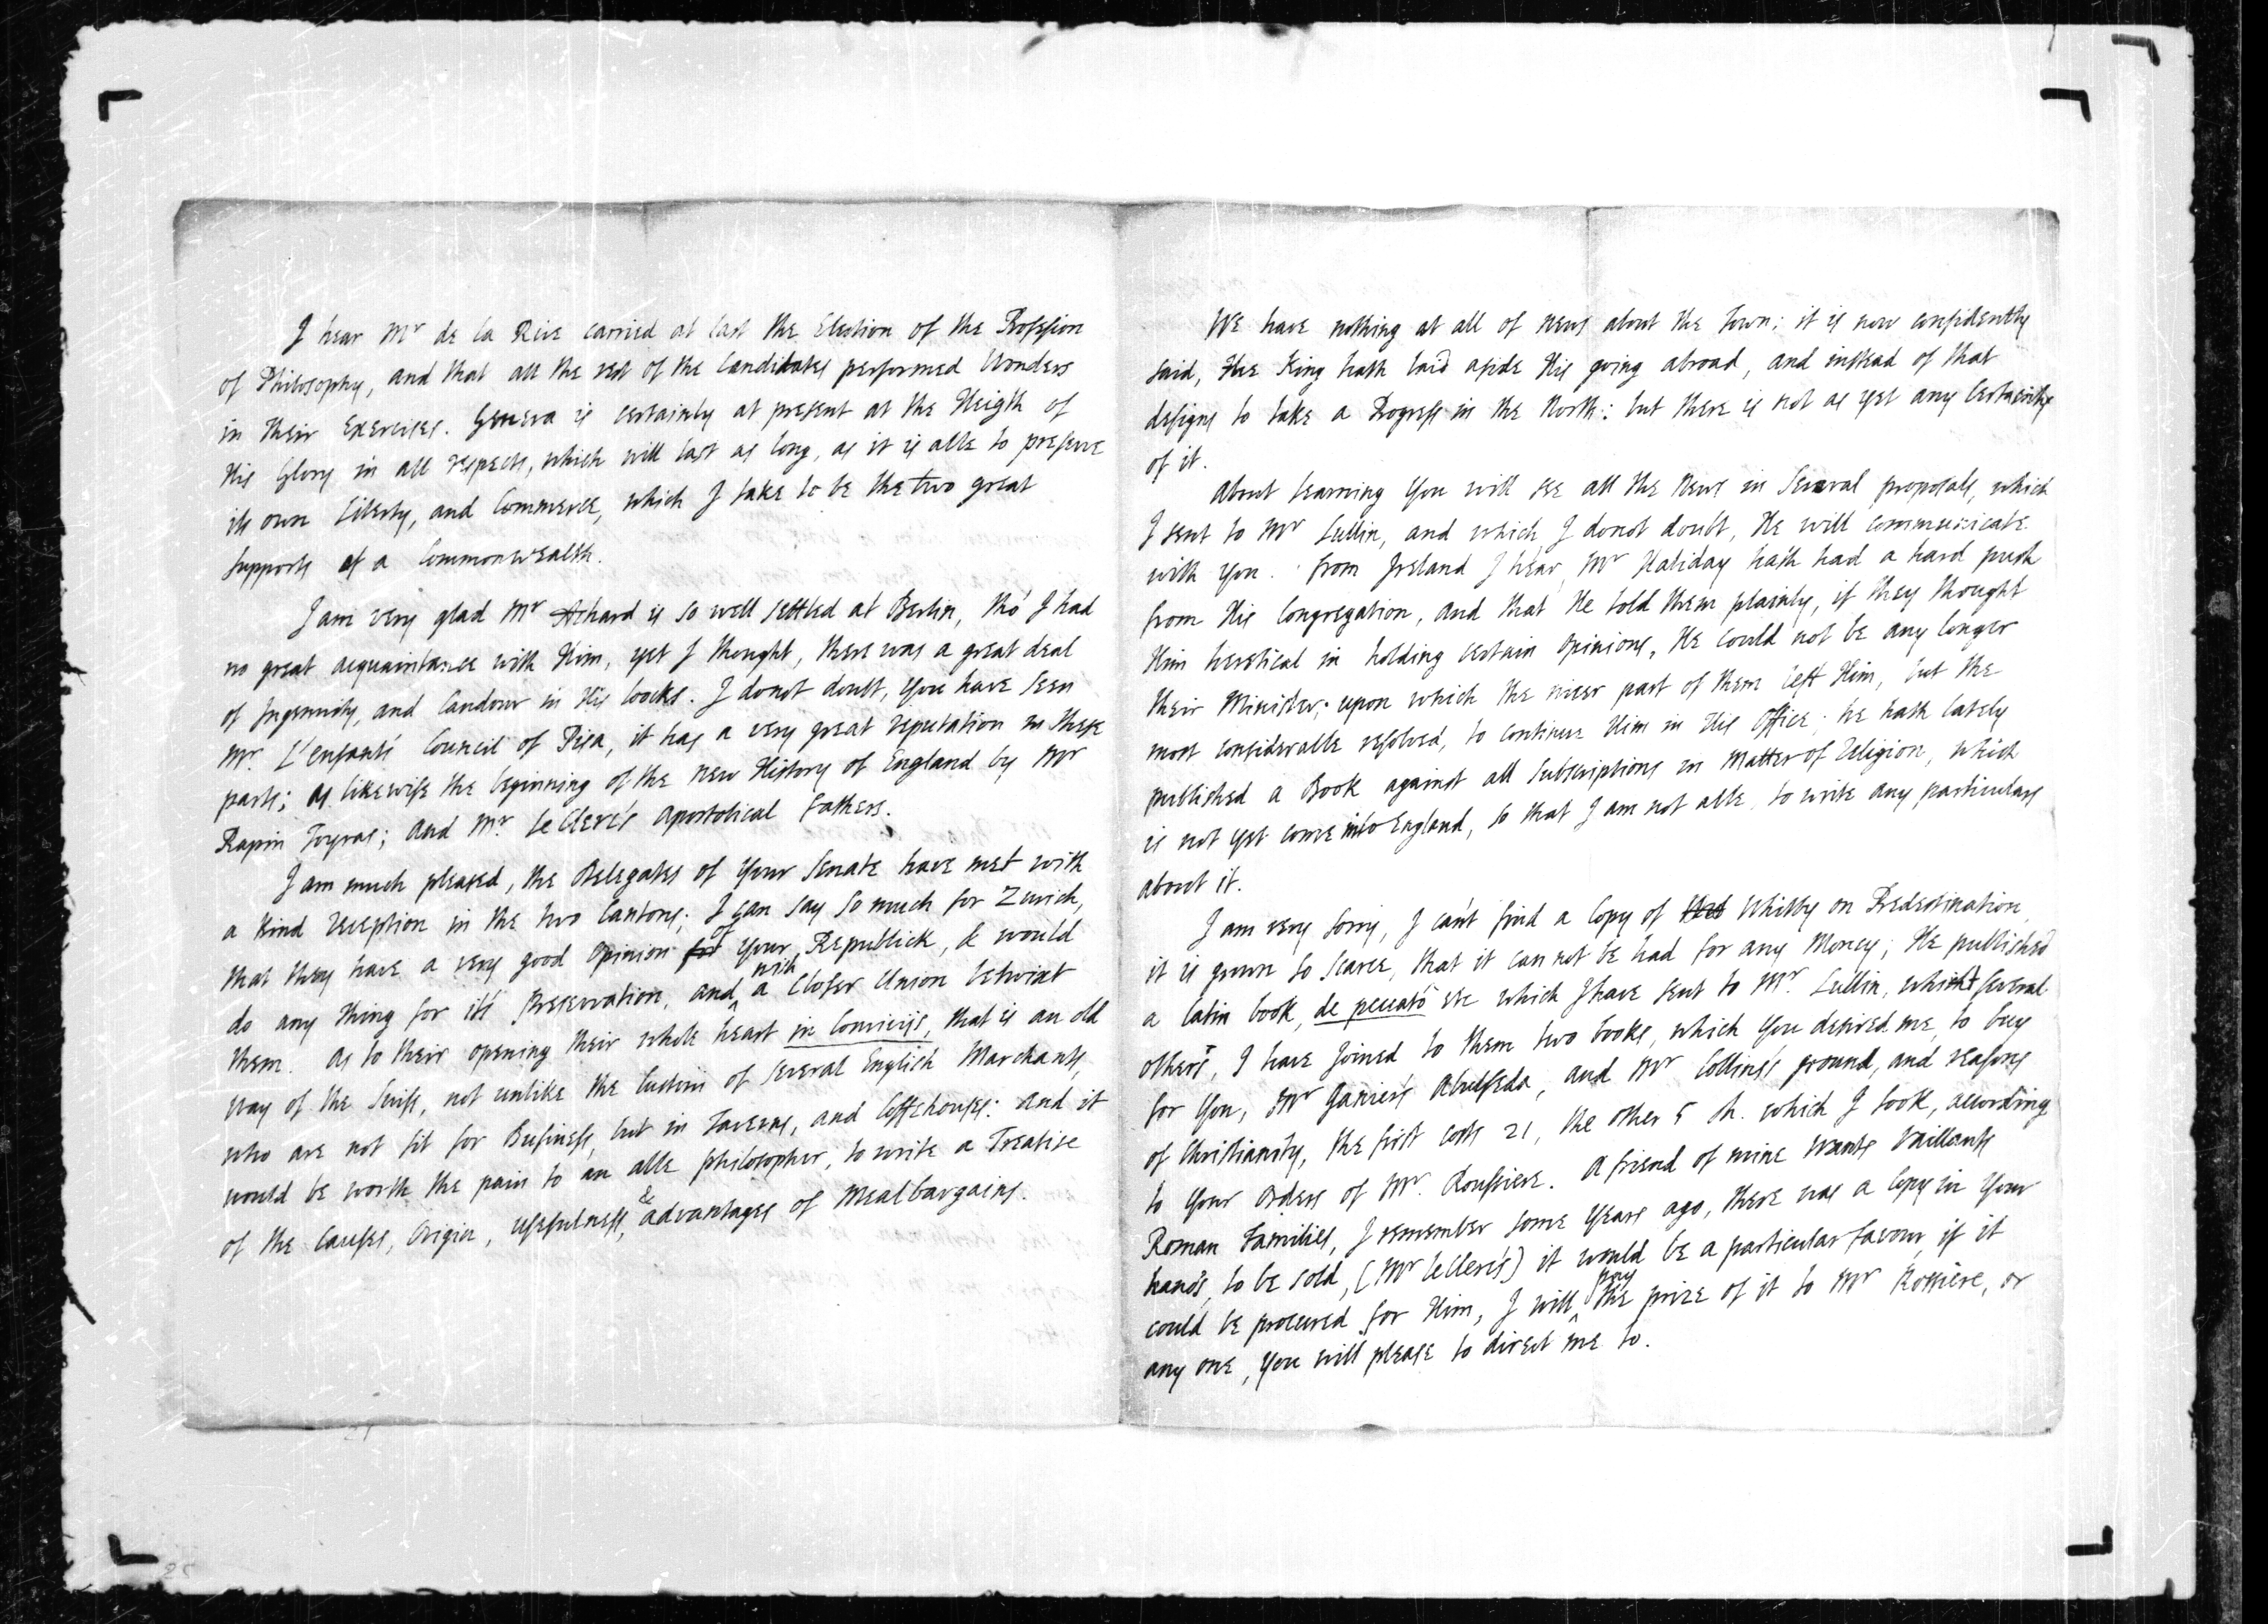 I hear Mr de la Rive carried at last the Election of the Profession
of Philosophy, and that all the rest of the Candidates performed Wonders
in their Exercises. Geneva is certainly at present at the Heigth of
His Glory in all respects, which will last as long, as it is able to preserve
its own Liberty, and Commerce, which I take to be the two great
supports of a Commonwealth.
I am very glad Mr Achard is so well settled at Berlin, tho' I had
no great acquaintance with Him, yet I thought, there was a great deal
of Ingenuity, and Candour in His looks. I donot doubt, you have seen
Mr. L'enfant's Council of Pisa, it has a very great reputation in these
parts; as likewise the beginning of the new History of England by Mr
Rapin Toyras; and Mr. le Clerc's apostolical Fathers.
I am much pleased, the Delegates of Your Senate have met with
a kind reception in the two Cantons; I can say so much for Zurich,
that they have a very good opinion for of Your Republick, & would
do any thing for it's Preservation, and with a Closer Union betwixt
them. As to their opening their whole heart in Conviviis, that is an old
way of the Swiss, not unlike the Custom of several English Marchants,
who are not fit for Business, but in Taverns, and Coffehouses: and it
would be worth the pain to an able philosopher, to write a Treatise
of the Causes, Origin, usefulness, & advantages of Mealbargains.
We have nothing at all of news about the Town; it is now confidently
said, the King hath laid aside His going abroad, and instead of that
designs to take a Progress in the North: but there is not as yet any Certainty
of it.
About learning You will see all the News in Several proposals, which
I sent to Mr Lullin, and which I donot doubt, He will communicate
with You. from Ireland I hear, Mr Haliday hath had a hard push
from His Congregation, and that He told them plainly, if they thought
Him heretical in holding certain opinions, He could not be any longer
their Minister; upon which the nicer part of them left Him, but the
most considerable resolved, to continue Him in His Office; he hath lately
published a Book against all subscriptions in Matter of Religion, which
is not yet come into England, so that I am not able to write any particulars
about it.
I am very sorry, I can't find a Copy of Whitby on Predestination,
it is grown so scarce, that it can not be had for any Money; He published
a latin book, de peccato etc which I have sent to Mr. Lullin, several
others, I have joined to them two books, which You desired me, to buy
for You, Mr Ganier's Abulfeda, and Mr Collins's ground, and reasons
of Christianity, the first costs 21, the other 5 sh. which I took, according
to Your Orders of Mr. Roussiere. A friend of mine wants Vaillants
Roman Families, I remember some Years ago, there was a Copy in Your
hands, to be sold, (Mr leClerc's) it would be a particular favour, if it
could be procured for Him, I will pay the prize of it to Mr Rossiere, or
any one, You will please to direct me to.